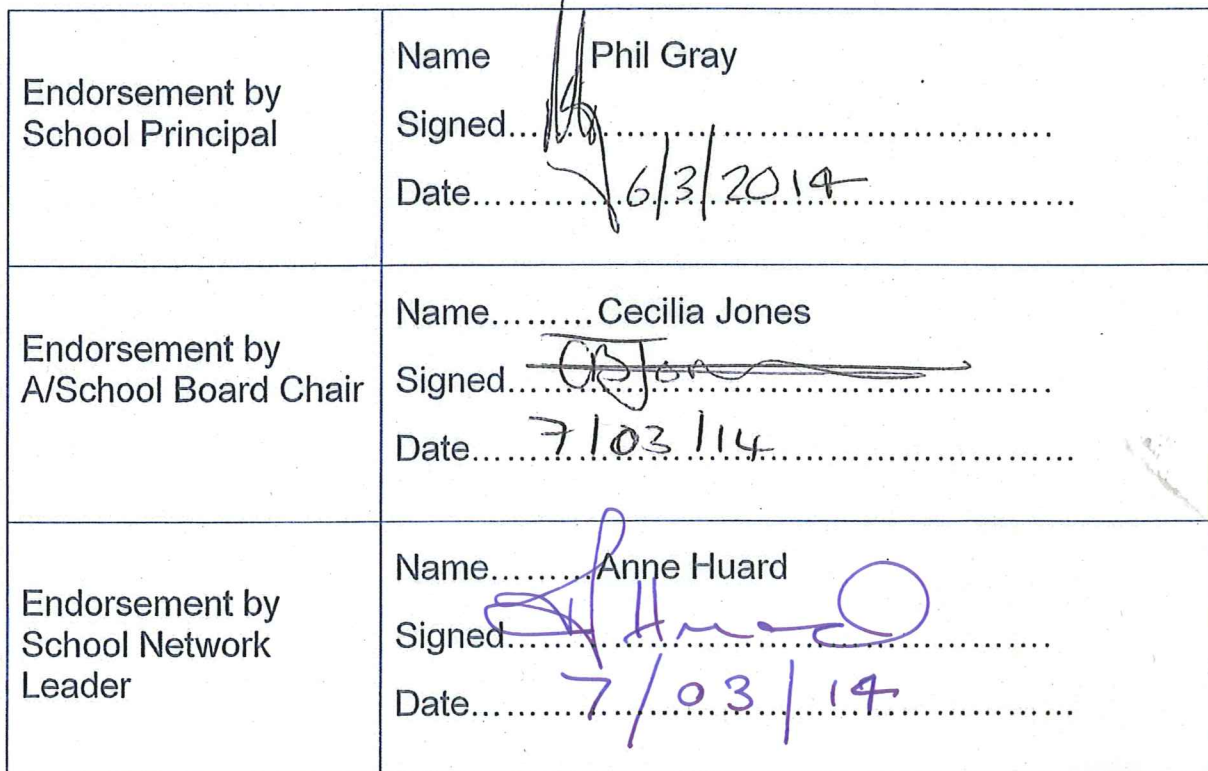 Endorsement by
School Principal
Name Phil Gray
Signed...............................................
Date................6/3/2014........................
Endorsement by
A/School Board Chair
Name.........Cecilia Jones
Signed...CBJon............................................
Date......7/03/14..............................
Endorsement by
School Network
Leader
Name.........Anne Huard
Signed...A Huard............................................
Date.........7/03/14........................